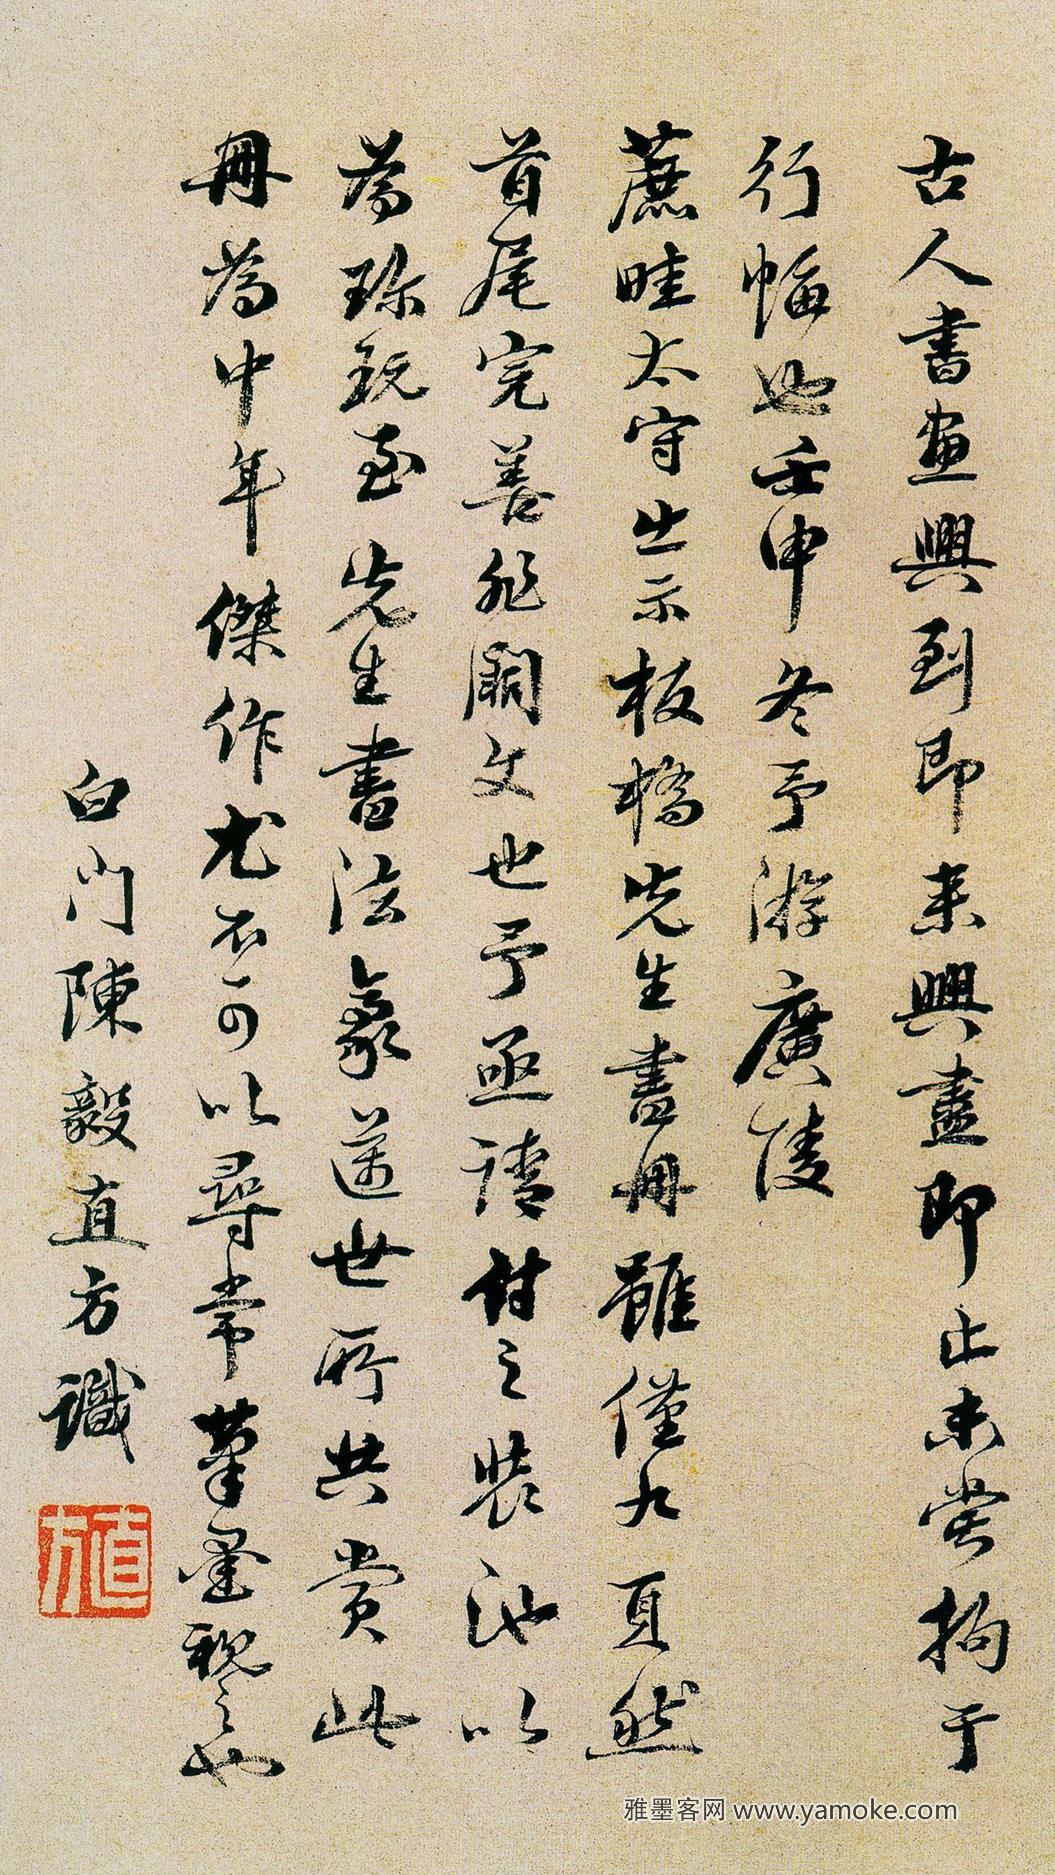 古人書畫興到即來興盡即止未嘗拘于
行幅也壬申冬予游廣陵
蔗畦太守出示板橋先生書冊雖僅九頁然
首尾完善非闕文也予亟請付之裝池以
為珎玩至先生書法豪邁世所共賞此
冊為中年傑作尤不可以尋常筆墨視之也
白門陳毅直方識
直方
雅墨客网 www.yamoke.com